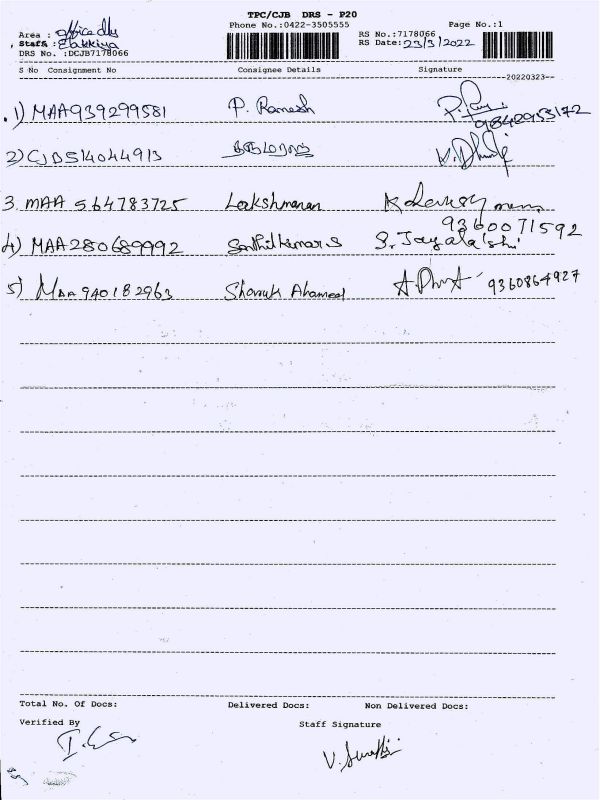 TPC/CJB DRS - P20
Phone No.:0422-3505555
Page No.:1
Area : office dly
Staff : Elakkiya
DRS No. :DCJB7178066
RS No.:7178066
RS Date:23/3/2022
S No Consignment No Consignee Details Signature
20220323
1) MAA939299581 P. Ramesh 9842953172
2) CJB514044913
3. MAA 564783725 Lakshmanan K Lakshmanan
9360071592
4) MAA280689992 Senthilkumar S S. Jayalakshi
5) MAA940182963 Sharuk Ahamed 9360864927
Total No. Of Docs: Delivered Docs: Non Delivered Docs:
Verified By Staff Signature